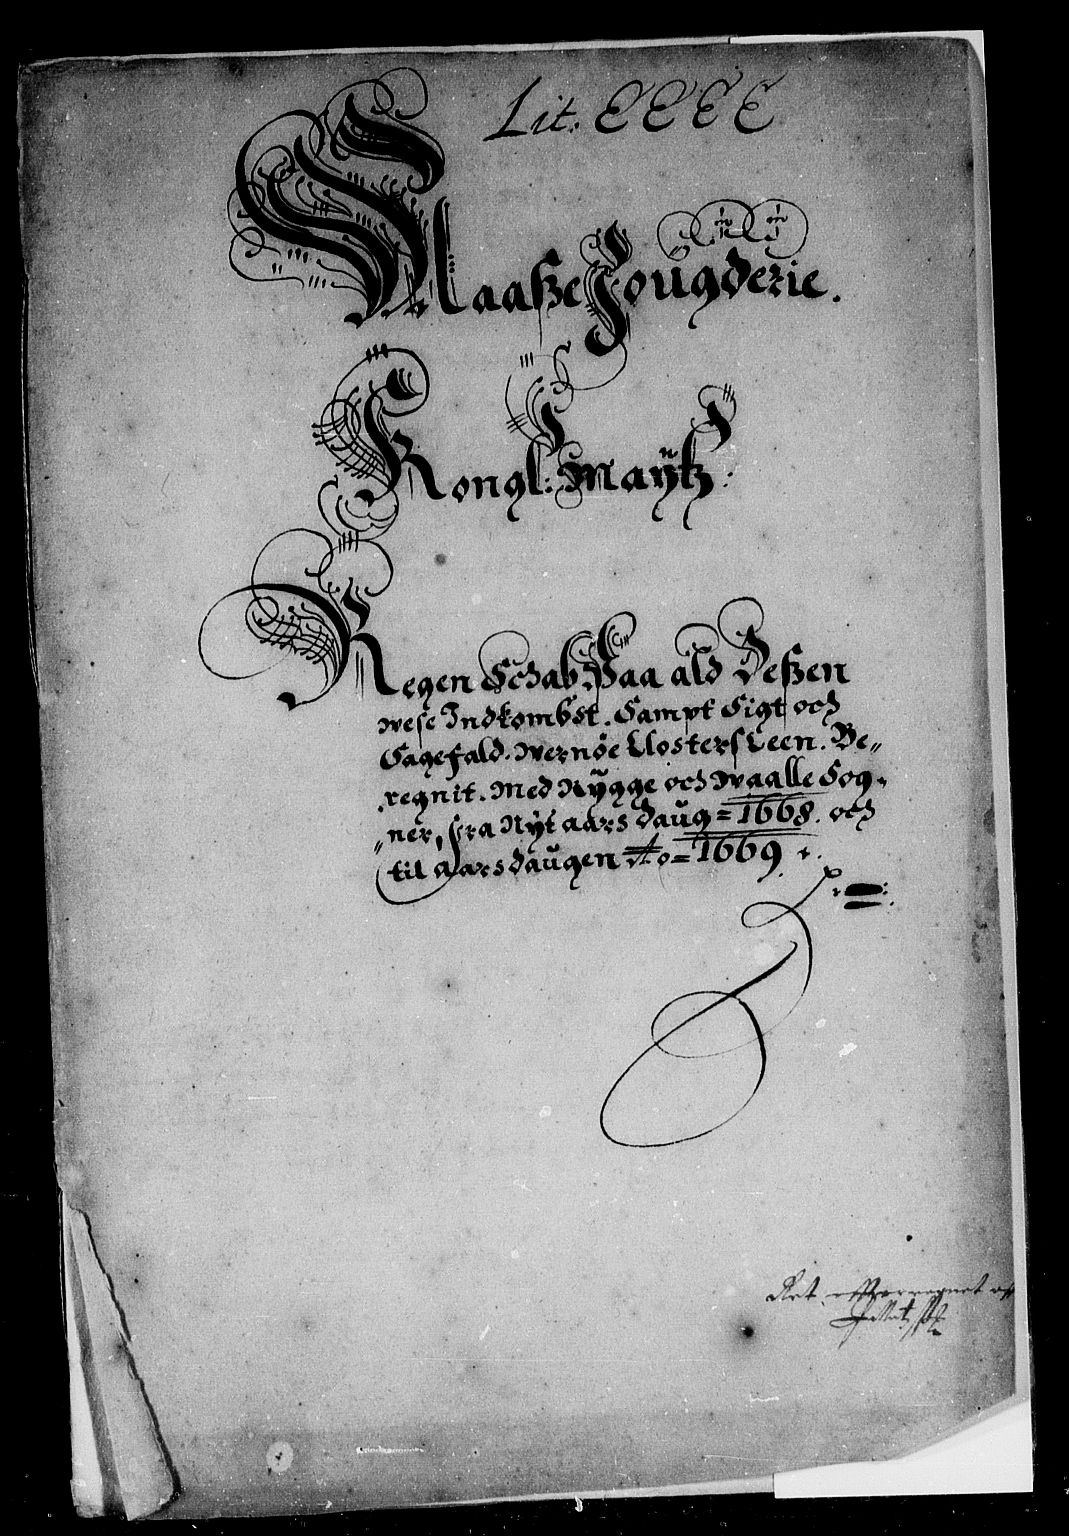 Lit. EEEE
Maasze Fougderie.
Kongl: Maÿtz:
Regen Schab Paa ald Deszen
wese Indkombst. Sampt Sigt och
Sagefald. Wernøe Closters Leen. Be„
regnit. Med Rÿgge och Waalle Sog„
„ner, fra Nÿt aars daug = 1668. och
til Aarsdaugen Ao = 1669
Ret